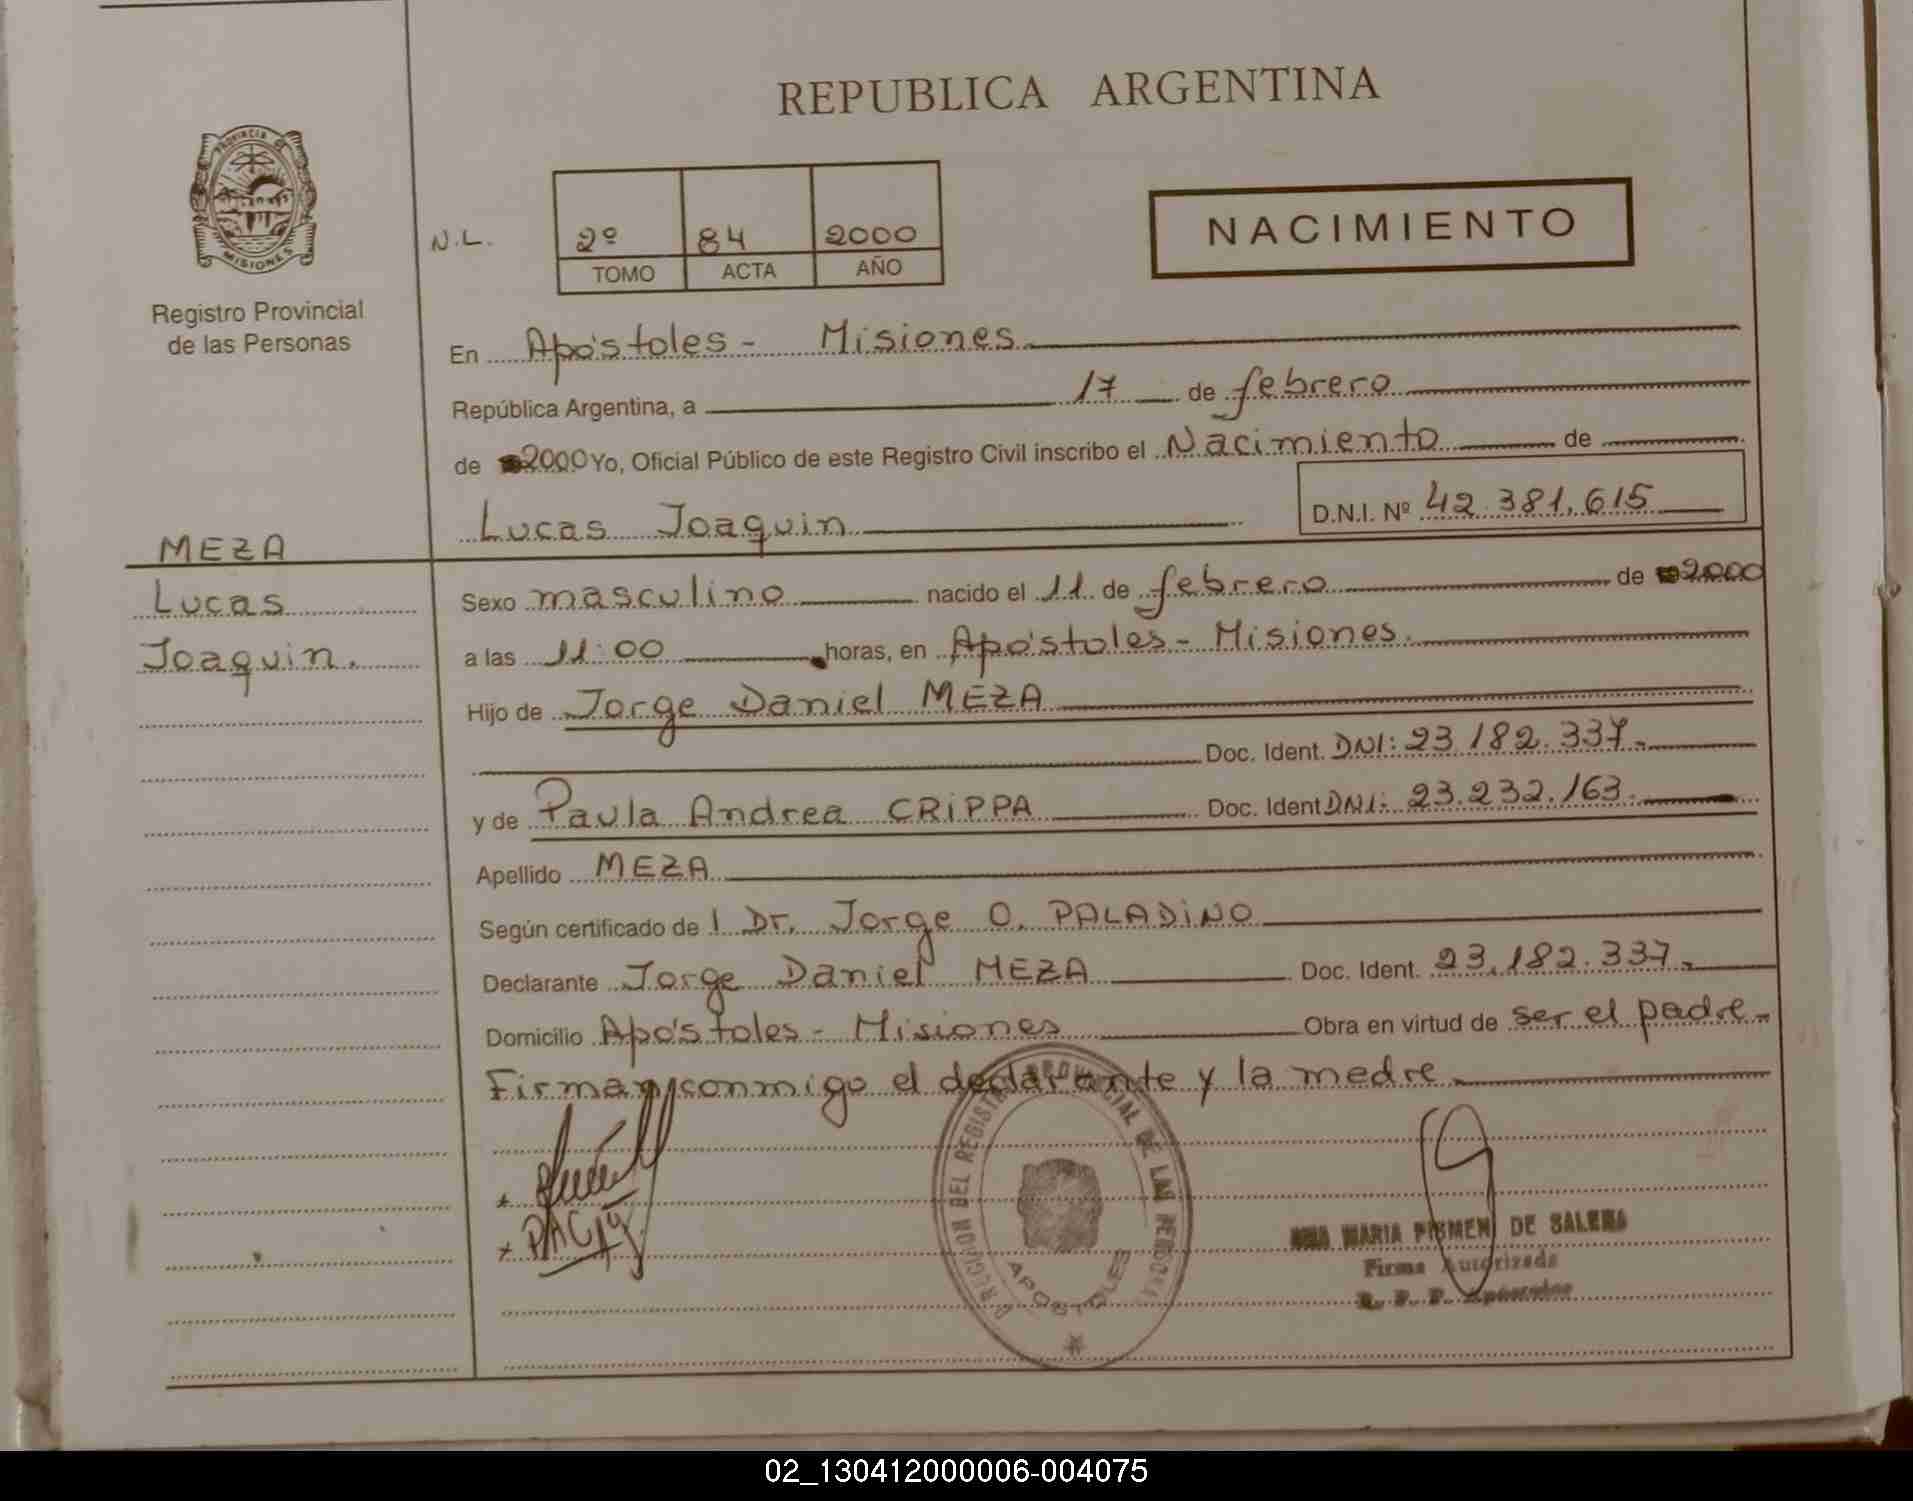 REPUBLICA ARGENTINA
PROVINCIA DE
MISIONES
Registro Provincial
de las Personas
N.L.
2º 84 2000
TOMO ACTA AÑO
NACIMIENTO
En Apóstoles - Misiones
República Argentina, a 17 de febrero
de 2000 Yo, Oficial Público de este Registro Civil inscribo el Nacimiento de
Lucas Joaquin D.N.I. Nº 42.381.615
MEZA
Lucas
Joaquin.
Sexo masculino nacido el 11 de febrero de 2000
a las 11:00 horas, en Apóstoles - Misiones.
Hijo de Jorge Daniel MEZA
Doc. Ident. DNI: 23.182.337.
y de Paula Andrea CRIPPA Doc. Ident DNI: 23.232.163.
Apellido MEZA
Según certificado de l Dr. Jorge O. PALADINO
Declarante Jorge Daniel MEZA Doc. Ident. 23.182.337.
Domicilio Apóstoles - Misiones Obra en virtud de ser el padre.
Firman conmigo el declarante y la madre.
DIRECCION DEL REGISTRO PROVINCIAL DE LAS PERSONAS
APOSTOLES
MARIA DE SALERA
Firma Autorizada
R. P. P. Apóstoles
02_130412000006-004075